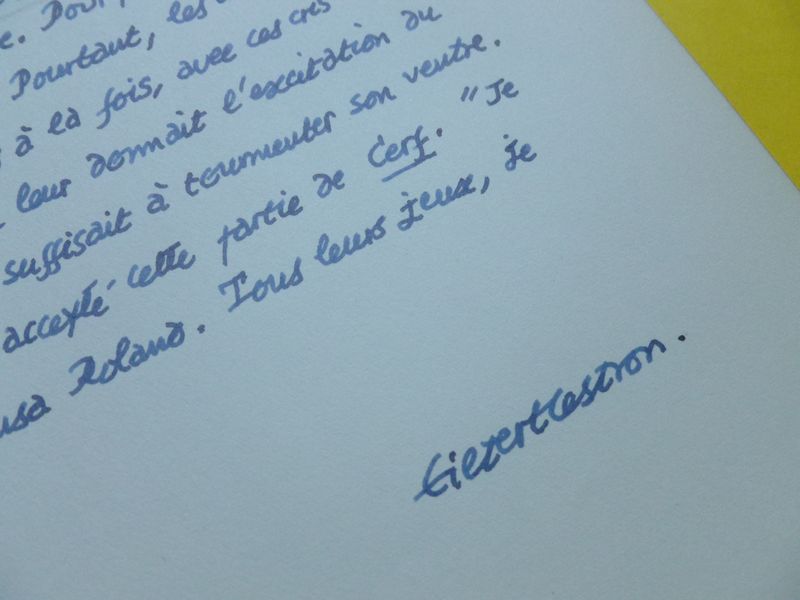 e. Pour
Pourtant, les
à la fois, avec ces cris
leur donnait l'excitation du
suffisait à tourmenter son ventre.
accepté cette partie de Cerf. "Je
usa Roland. Tous leurs jeux, je